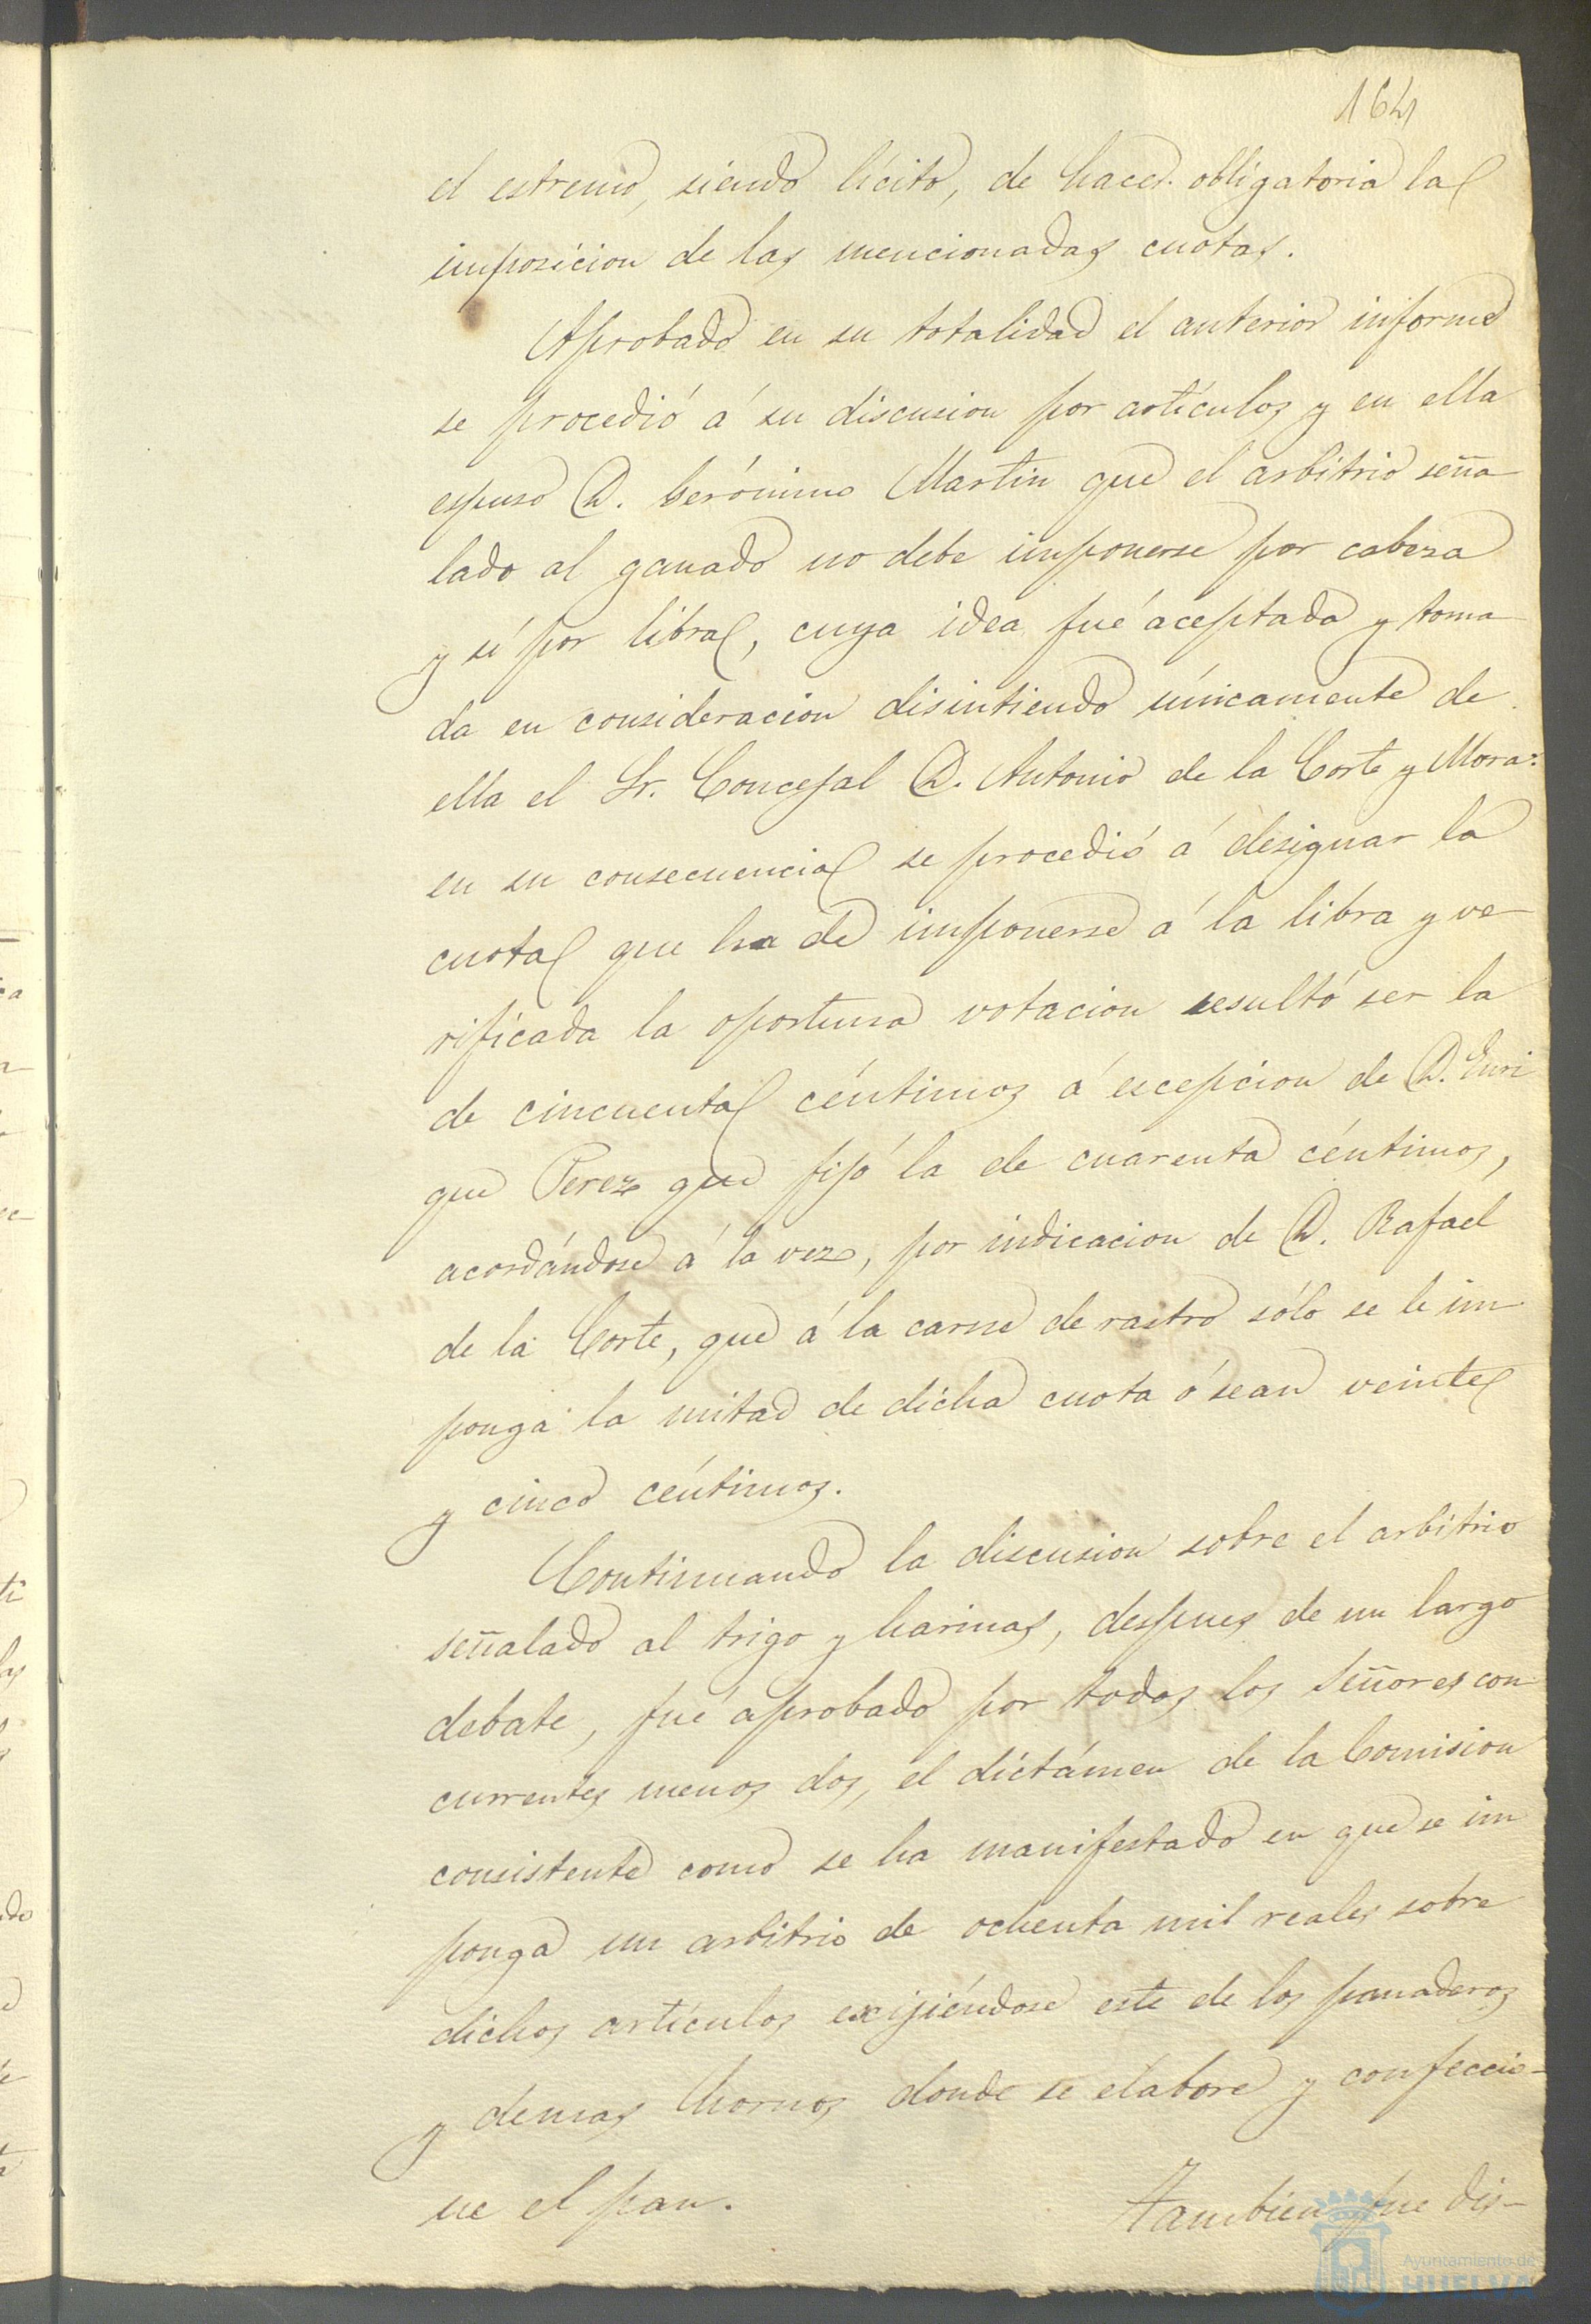 164
el estremo, siendo lícito, de hacer obligatoria la
imposicion de las mencionadas cuotas.
Aprobado en su totalidad el anterior informe
se procedió á su discusion por artículos y en ella
espuso D. Gerónimo Martin que el arbitrio seña
lado al ganado no debe imponerse por cabeza
y sí por libra, cuya idea fué aceptada y toma
da en consideracion disintiendo únicamente de
ella el Sr. Concejal D. Antonio de la Corte y Mora:
en su consecuencia se procedió á designar la
cuota que ha de imponerse á la libra y ve-
rificada la oportuna votacion resultó ser la
de cincuenta céntimos á escepcion de D. Enri
que Perez que fijó la de cuarenta céntimos,
acordándose á la vez, por indicacion de D. Rafael
de la Corte, que á la carne de rastro sólo se le im-
ponga la mitad de dicha cuota ó sean veinte
y cinco céntimos.
Continuando la discusion sobre el arbitrio
señalado al trigo y harinas, despues de un largo
debate, fué aprobado por todos los Señores con
currentes menos dos, el dictámen de la Comision
consistente como se ha manifestado en que se im
ponga un arbitrio de ochenta mil reales sobre
dichos artículos exijiéndose este de los panaderos
y demas hornos donde se elabore y confeccio-
ne el pan. Tambien fue dis-
Ayuntamiento de
HUELVA